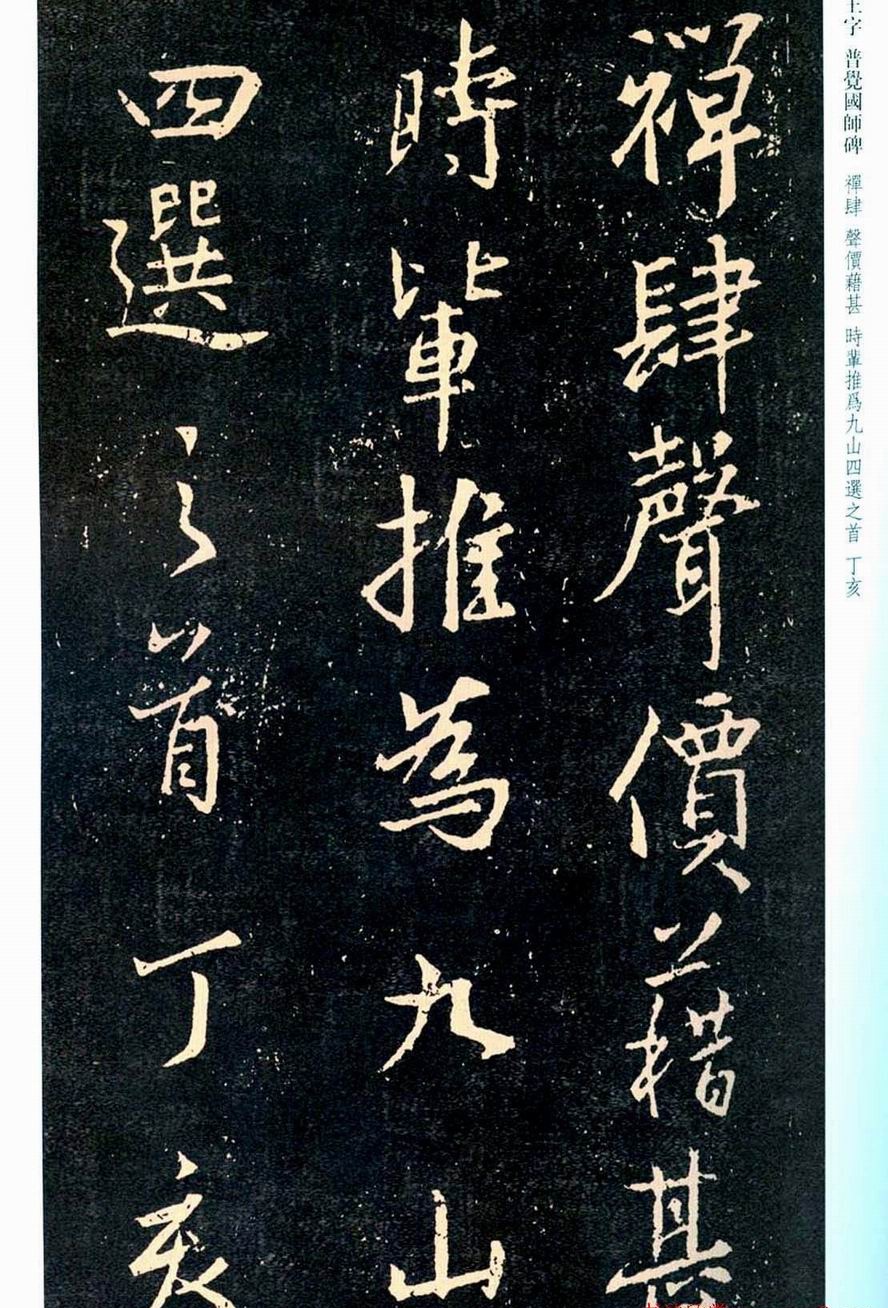 禪肆聲價藉甚
時輩推為九山
四選之首丁亥
王字 普覺國師碑 禪肆 聲價藉甚 時輩推爲九山四選之首 丁亥